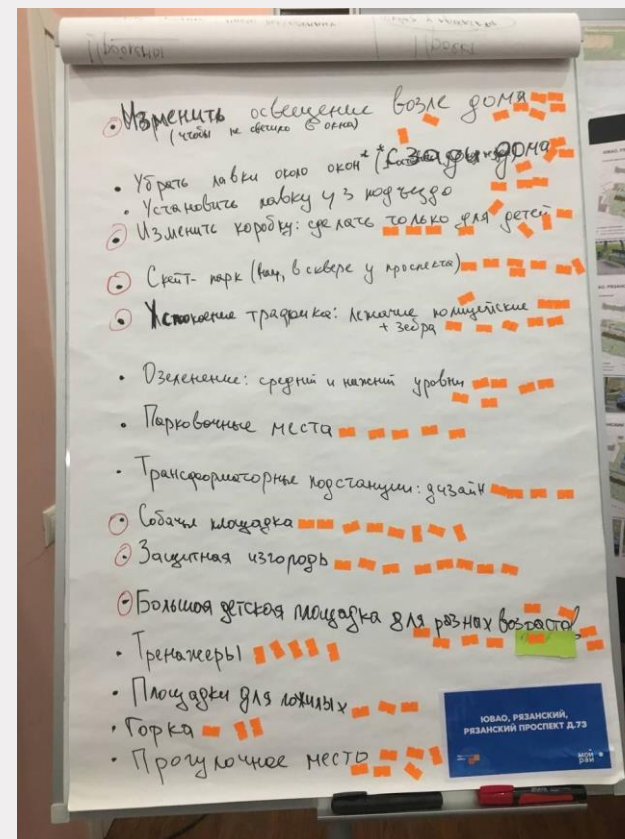 Проблемы
Проект
• Изменить освещение возле дома
(чтобы не светило в окна)
• Убрать лавки около окон* (* сзади дома
• Установить лавку у 3 подъезда
• Изменить коробку: сделать только для детей
• Скейт-парк (в сквере у проспекта)
• Успокоение трафика: лежачие полицейские
+ зебра
• Озеленение: средний и нижний уровни
• Парковочные места
• Трансформаторные подстанции: дизайн
• Собачья площадка
• Защитная изгородь
• Большая детская площадка для разных возрастов
• Тренажеры
• Площадки для пожилых
• Горка
• Прогулочное место
ЮВАО, РЯЗАНСКИЙ,
РЯЗАНСКИЙ ПРОСПЕКТ Д.73
мой
рай